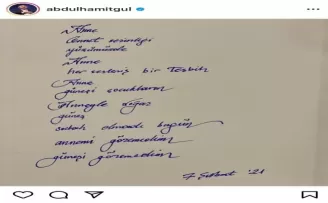 abdulhamitgul
Anne
Cennet serinliği
yüzümüzde
Anne
her sesleniş bir Tesbih
Anne
güneşi çocukların
Anneyle doğar
güneş
sabah olmadı bugün
annemi göremedim
güneşi göremedim
7 Şubat '21